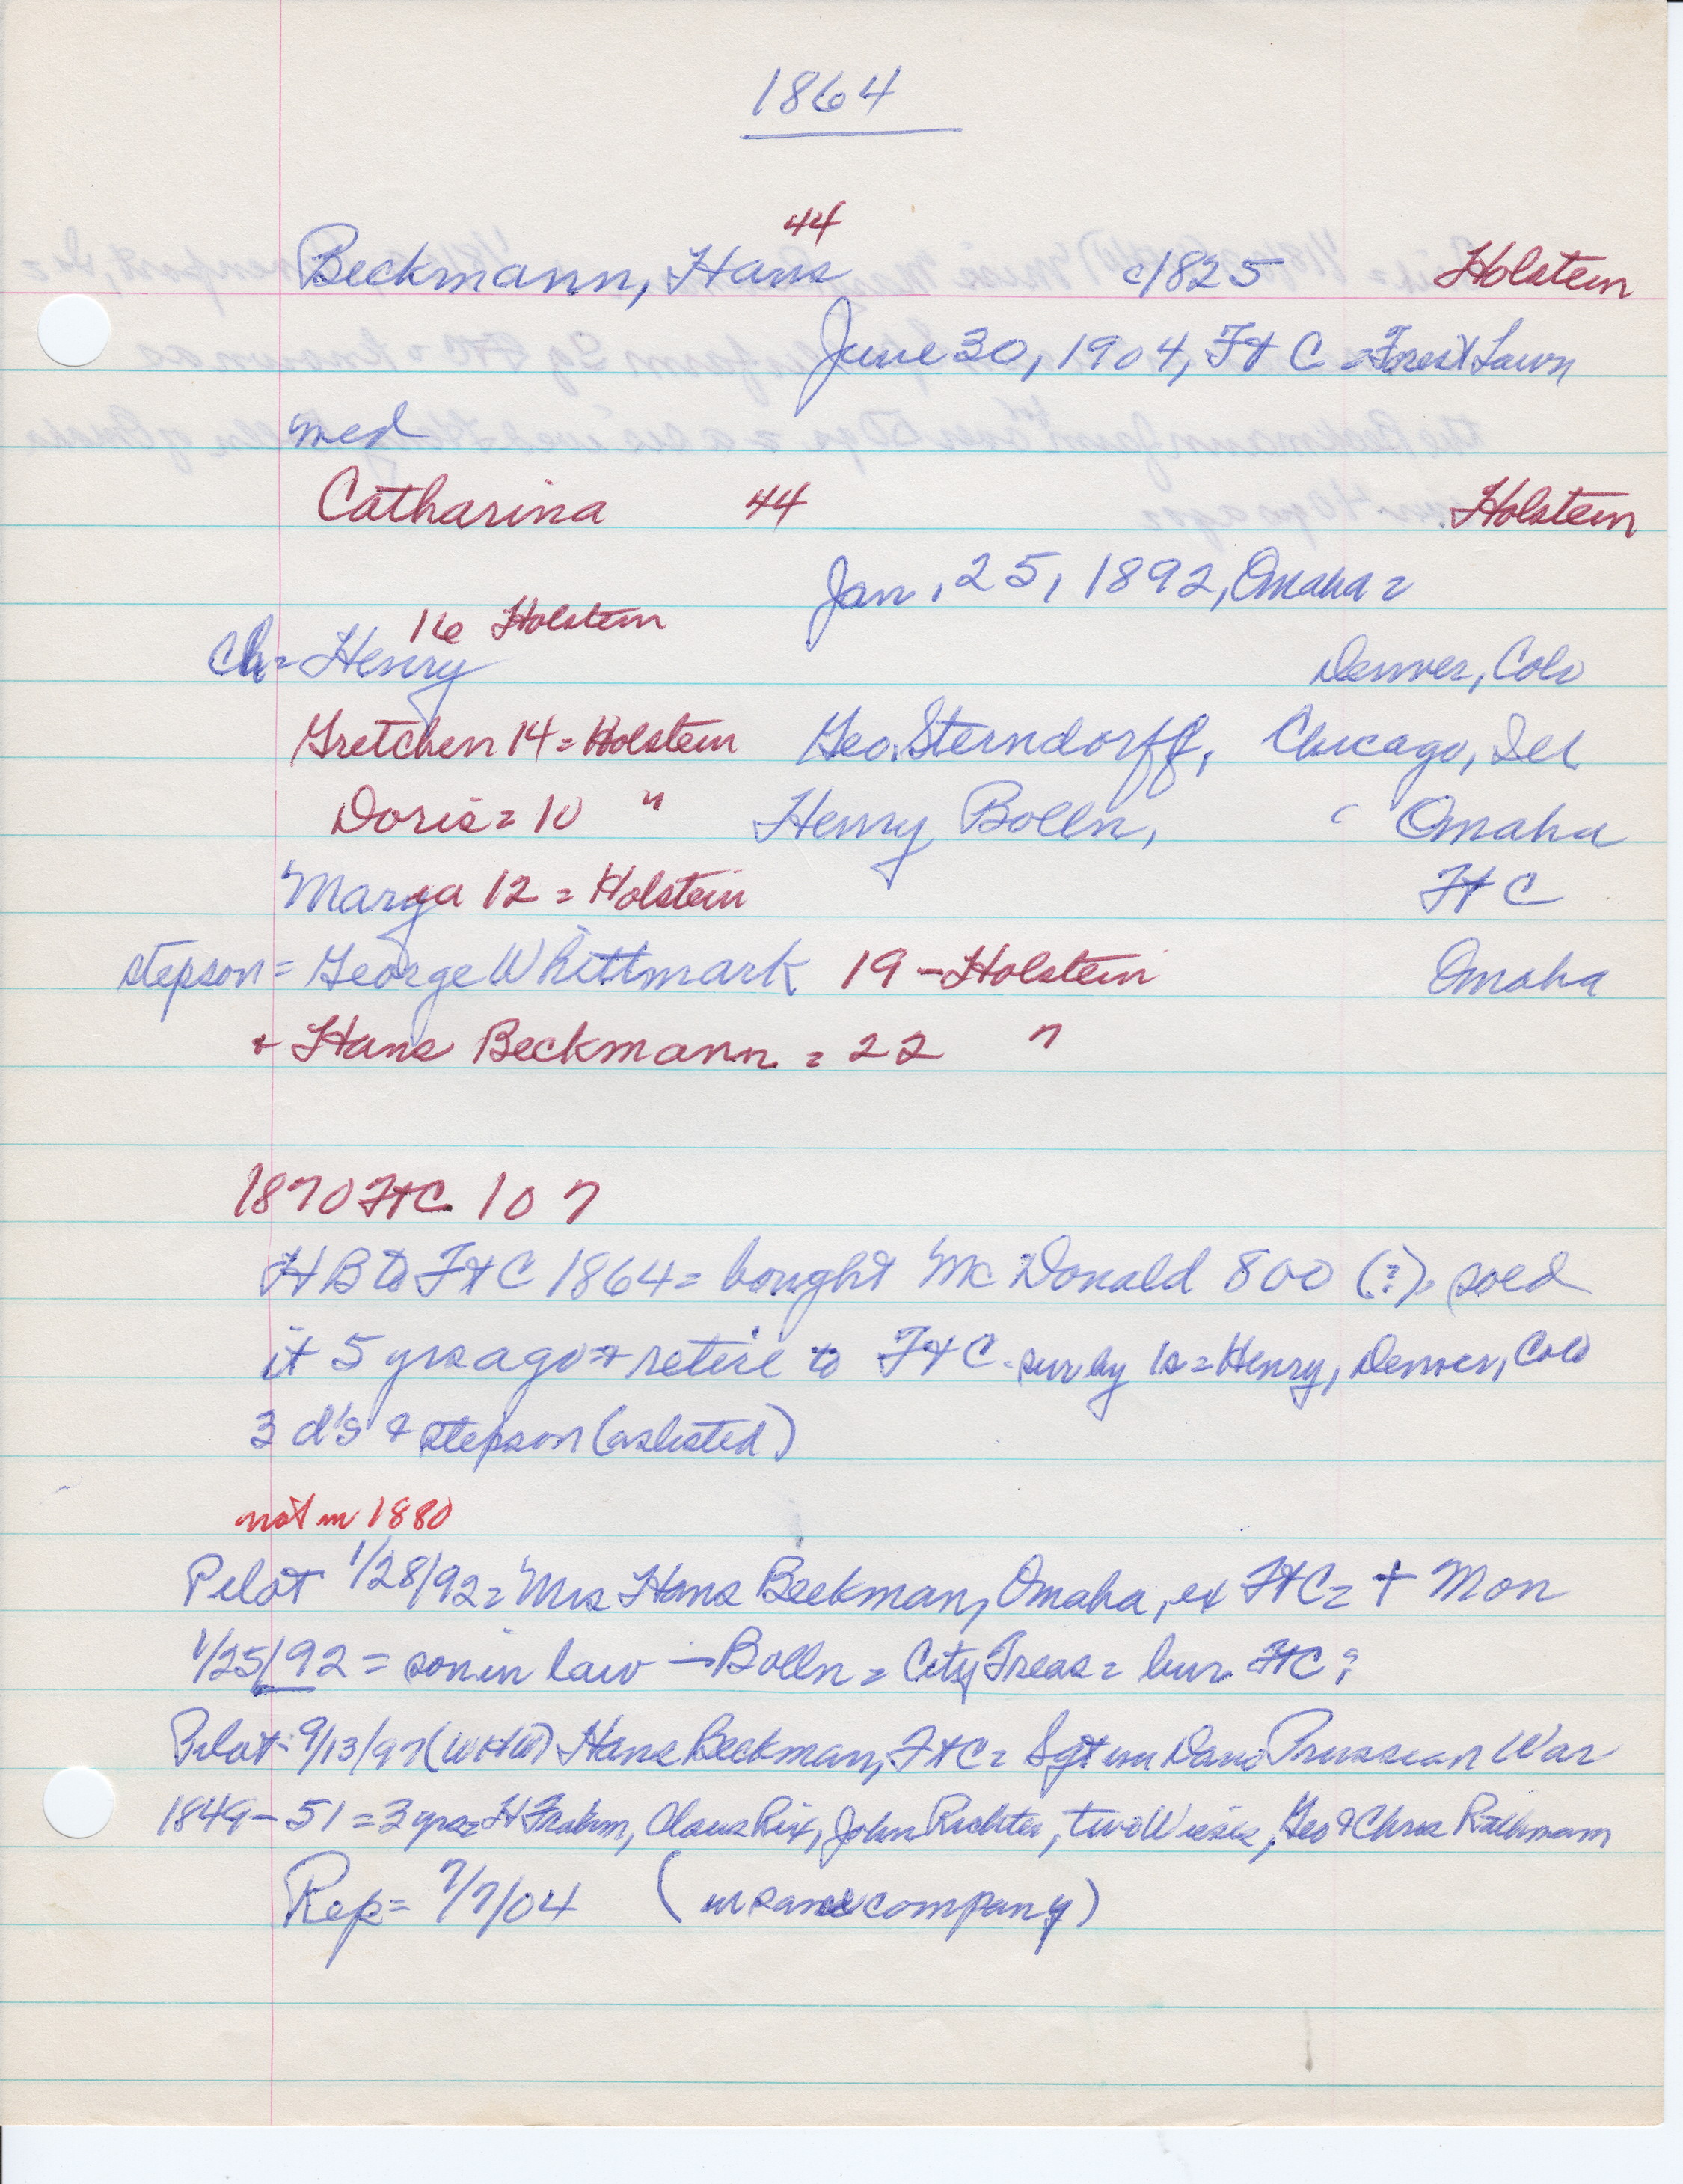 1864
44
Beckmann, Hans c1825 Holstein
June 30, 1904, Ft C = Forest Lawn
med
Catharina 44 Holstein
Jan. 25, 1892, Omaha =
16 Holstein
ch = Henry Denver, Colo
Gretchen 14 = Holstein Geo. Sterndorff, Chicago, Ill
Doris = 10 " Henry Bolln, Omaha
Marga 12 = Holstein Ft C
stepson = George Whittmark 19 - Holstein Omaha
+ Hans Beckmann = 22 "
1870 Ft C. 107
H B to Ft C 1864 = bought Mc Donald 800 (?) = sold
it 5 yrs ago = + retire to Ft C. sur by 1s = Henry, Denver, Colo
3 d's + stepson (as listed)
not in 1880
Pilot 1/28/92 = Mrs Hans Beekman, Omaha, ex Ft C = + Mon
1/25/92 = son in law - Bolln = City Treas = bur. Ft C ?
Pilot = 9/13/97 (WHW) Hans Beekman, Ft C = Sgt in Dano Prussian War
1849-51 = 3 yrs = H Frahm, Claus Rix, John Richter, two Wieses, Geo & Chris Rathmann
Rep = 7/7/04 (in same company)